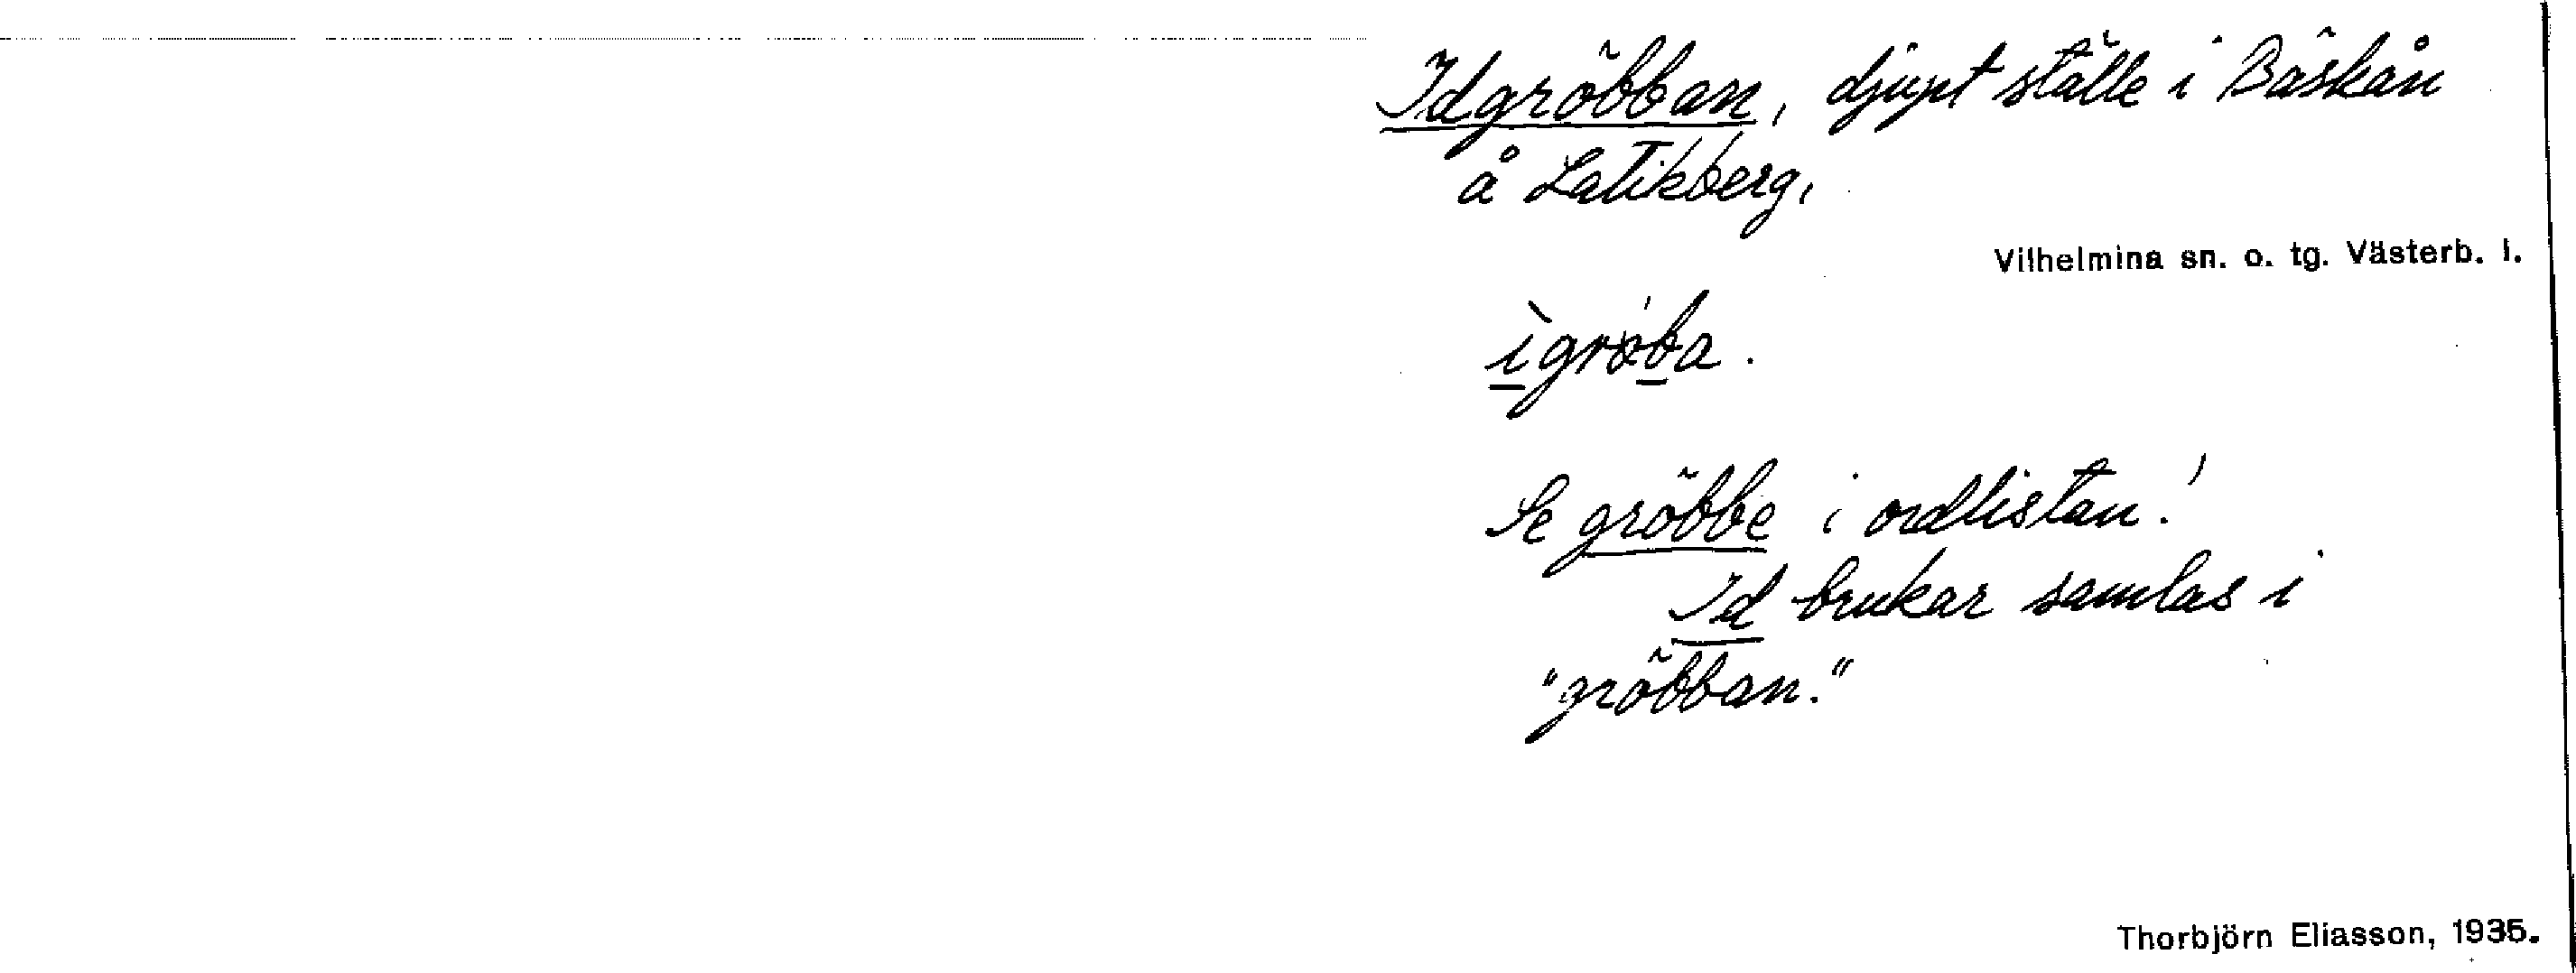 Idgröbban, djupt ställe i Bäskån
å Latikberg,
Vilhelmina sn. o. tg. Västerb. l.
Se gröbbe i ordlistan!
Id brukar samlas i
"gröbban."
Thorbjörn Eliasson, 1935.